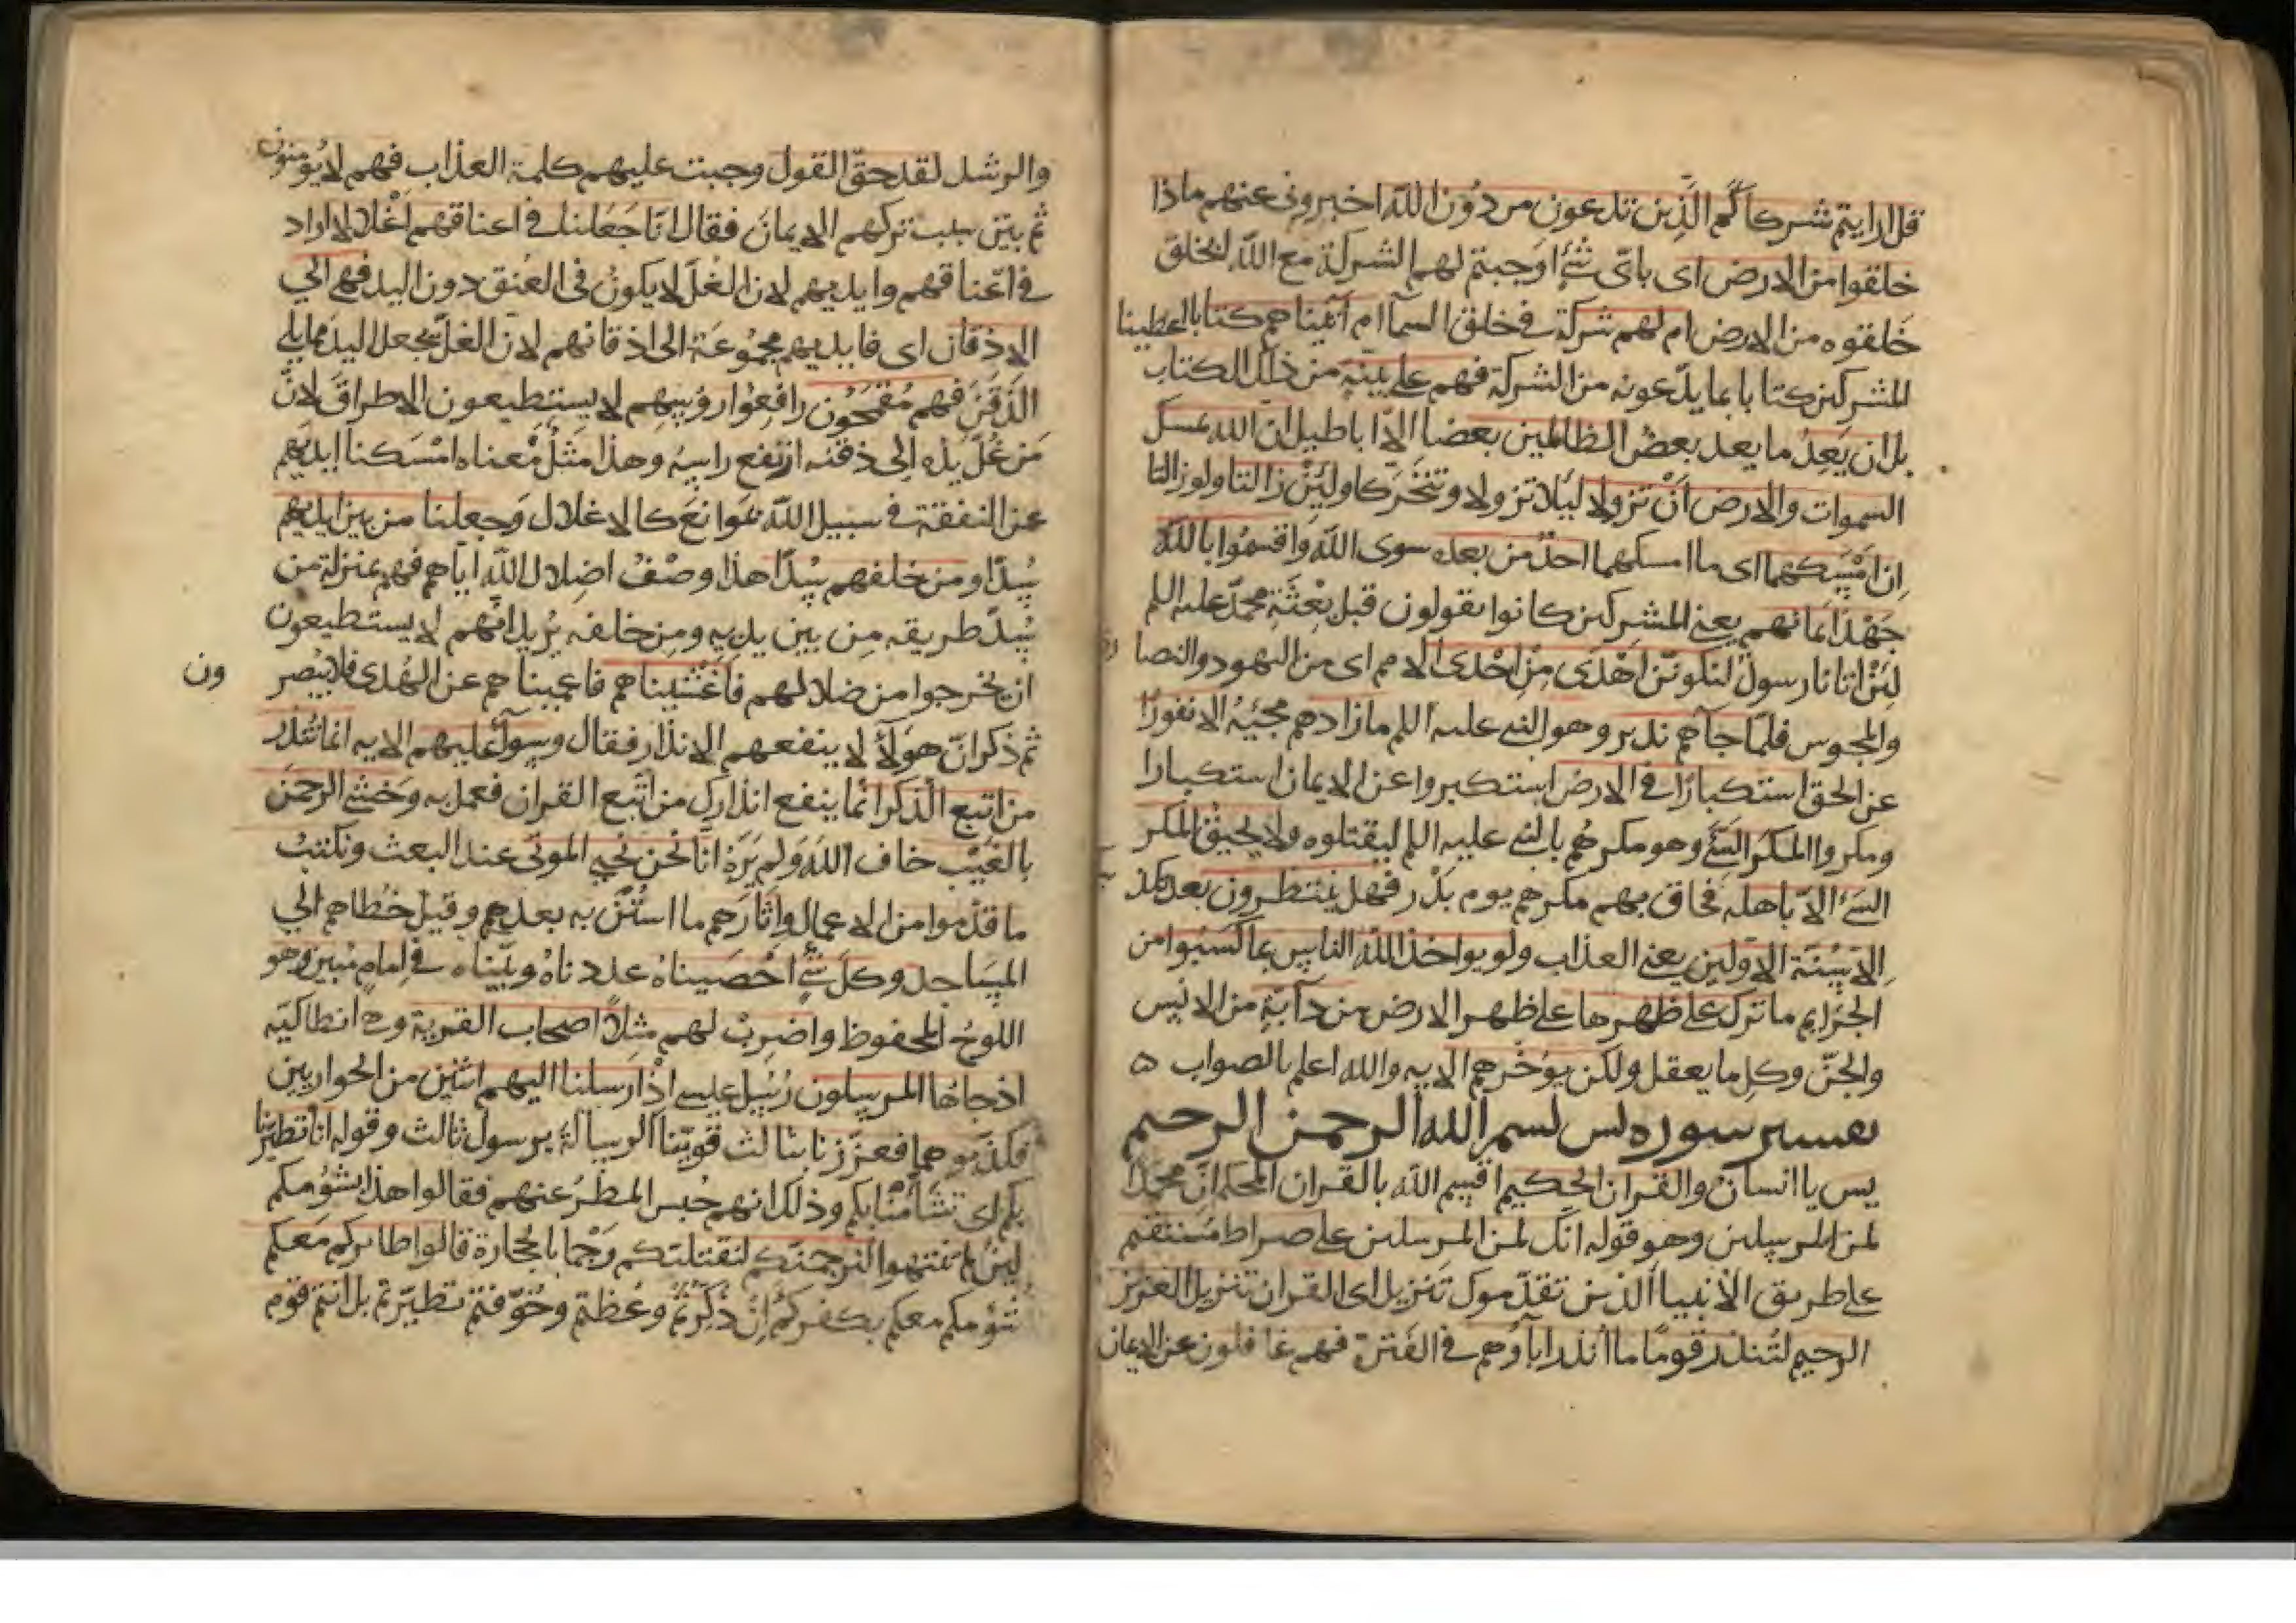 قل ارايتم شركاكم الذين تدعون من دون الله اخبروني عنهم ماذا
خلقوا من الارض اى باىّ شئ اوجبتم لهم الشركة مع الله لخلق
خلقوه من الارض ام لهم شركة في خلق السمآ ام آتيناهم كتابا اعطينا
المشركين كتابا بما يدّعونه من الشركة فهم على بينة من ذلك الكتاب
بل ان يعد ما يعد بعض الظالمين بعضا الّا اباطيل ان الله يمسك
السموات والارض أنْ تزولا ليلا تزولا وتتحركا ولئن زالتا ولو زالتا
ان امسكهما اى ما امسكهما احد من بعده سوى الله واقسموا بالله
جهد ايمانهم يعني المشركين كانوا يقولون قبل بعثة محمد عليه السلم
لئن اتانا رسول لنكونن اهدى من احدى الامم اى من اليهود والنصا
رى
والمجوس فلما جآهم نذير وهو النبي عليه السلم مازادهم مجيئه الا نفورًا
عن الحق استكبارًا في الارض استكبروا عن الايمان استكبارا
ومكروا المكر السيّئ وهو مكرهم بالنبي عليه السلم ليقتلوه ولا يحيق المكر
السيئ الا باهله فحاق بهم مكرهم يوم بدر فهل ينتظرون بعد
الا سنة الاولين يعني العذاب ولو يواخذ الله الناس بما كسبوا من
الجرايم ما ترك على ظهرها على ظهر الارض من دآبة من الانس
والجنّ وكل ما يعقل ولكن يؤخرهم الايه والله اعلم بالصواب ه
تفسير سوره يس بسم الله الرحمن الرحيم
يس يا انسان والقران الحكيم اقسم الله بالقران المحكم انّ محمدًا
لمن المرسلين وهو قوله انك لمن المرسلين على صراط مستقيم
على طريق الانبيا الذين تقدموك تنزيل اى القران تنزيل العزيز
الرحيم لتنذر قومًا ما انذر اباؤهم في الفترة فهم غافلون عن الايمان
والرشد لقد حقّ القول وجبت عليهم كلمة العذاب فهم لا يؤمنون
ثم بيّن سبب تركهم الايمان فقال انا جعلنا في اعناقهم اغلالا اراد
في اعناقهم وايديهم لان الغلّ لا يكون في العنق دون اليد فهي الي
الاذقان اى فايديهم مجموعة الى اذقانهم لان الغلّ يجعل اليد مما يلي
الذقن فهم مقمحون رافعوا رؤسهم لا يستطيعون الاطراق لانّ
من غلّ يده الى ذقنه ارتفع راسه وهذا مثل معناه امسكنا ايديهم
عن النفقة في سبيل الله بموانع كالاغلال وجعلنا من بين ايديهم
سدّا ومن خلفهم سدّا هذا وصف اضلال الله اياهم فهم بمنزلة من
سدّ طريقه من بين يديه ومن خلفه يريد انهم لا يستطيعون
ان يخرجوا من ضلالهم فاغشيناهم فاعميناهم عن الهدى فلا يبصر
ون
ثم ذكر انّ هولآء لا ينفعهم الانذار فقال وسوآء عليهم الايه انما تنذر
من اتبع الذكر انما ينفع انذارك من اتبع القران فعمل به وخشي الرحمن
بالغيب خاف الله ولم يره انا نحن نحيي الموتى عند البعث ونكتب
ما قدموا من الاعمال واثارهم ما استُنّ به بعدهم وقيل خطاهم الي
المساجد وكل شئ احصيناه عددناه وبيّناه في امام مبين وهو
اللوح المحفوظ واضرب لهم مثلاً اصحاب القرية وهي انطاكيه
اذ جاها المرسلون رسل عيسى اذ ارسلنا اليهم اثنين من الحواريين
فكذبوهما فعززنا بثالث قوّينا الرسالة برسول ثالث وقوله انا تطيرنا
بكم اى تشأمنا بكم وذلك انهم حبس المطر عنهم فقالوا هذا بشؤمكم
لئن لم تنتهوا لنرجمنكم لنقتلنكم رجما بالحجارة قالوا طائركم معكم
شؤمكم معكم بكفركم إن ذكرتم وعظتم وخوّفتم تطيّرتم بل انتم قوم